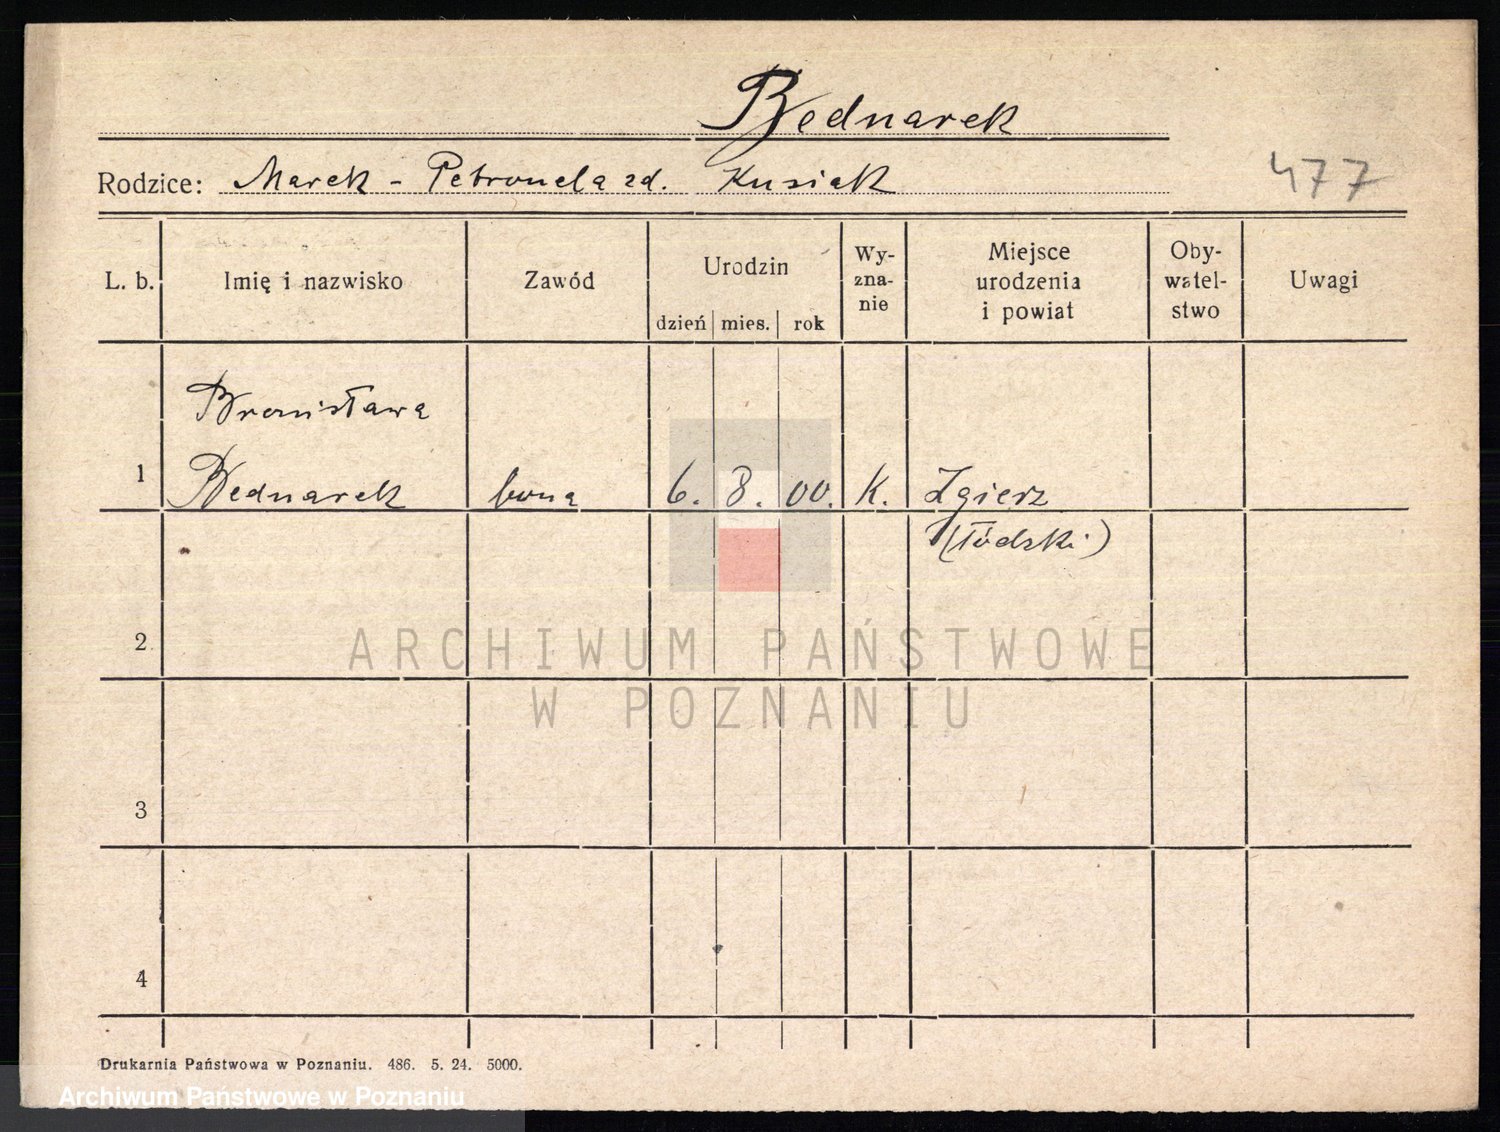 Bednarek
Rodzice: Marek - Petronela zd. Kusiak
477
L. b. Imię i nazwisko Zawód Urodzin dzień mies. rok Wy-zna-nie Miejsce urodzenia i powiat Oby-watel-stwo Uwagi
Bronisława
1 Bednarek bona 6. 8. 00. K. Zgierz
(łódzki)
2
ARCHIWUM PAŃSTWOWE
W POZNANIU
3
4
Drukarnia Państwowa w Poznaniu. 486. 5. 24. 5000.
Archiwum Państwowe w Poznaniu